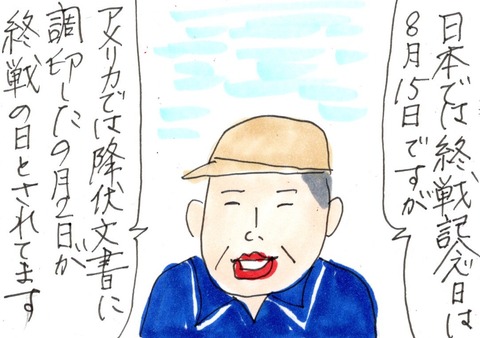 日本では終戦記念日は
8月15日ですが
アメリカでは降伏文書に
調印した9月2日が
終戦の日とされてます